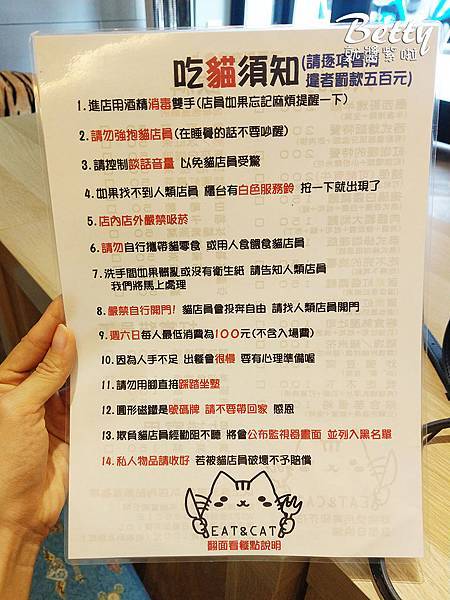 Betty
吃貓須知
1.進店用酒精消毒雙手(店員如果忘記麻煩提醒一下)
2.請勿強抱貓店員(在睡覺的話不要吵醒)
3.請控制談話音量 以免貓店員受驚
4.如果找不到人類店員 櫃台有白色服務鈴 按一下就出現了
5.店內店外嚴禁吸菸
6.請勿自行攜帶貓零食 或用人食餵食貓店員
7.洗手間如果髒亂或沒有衛生紙 請告知人類店員
我們將馬上處理
8.嚴禁自行開門! 貓店員會投奔自由 請找人類店員開門
9.週六日每人最低消費為100元(不含入場費)
10.因為人手不足 出餐會很慢 要有心理準備喔
11.請勿用腳直接踩踏坐墊
12.圓形磁鐵是號碼牌 請不要帶回家 感恩
13.欺負貓店員經勸阻不聽 將會公布監視器畫面 並列入黑名單
14.私人物品請收好 若被貓店員破壞不予賠償
EAT&CAT
翻面看餐點說明